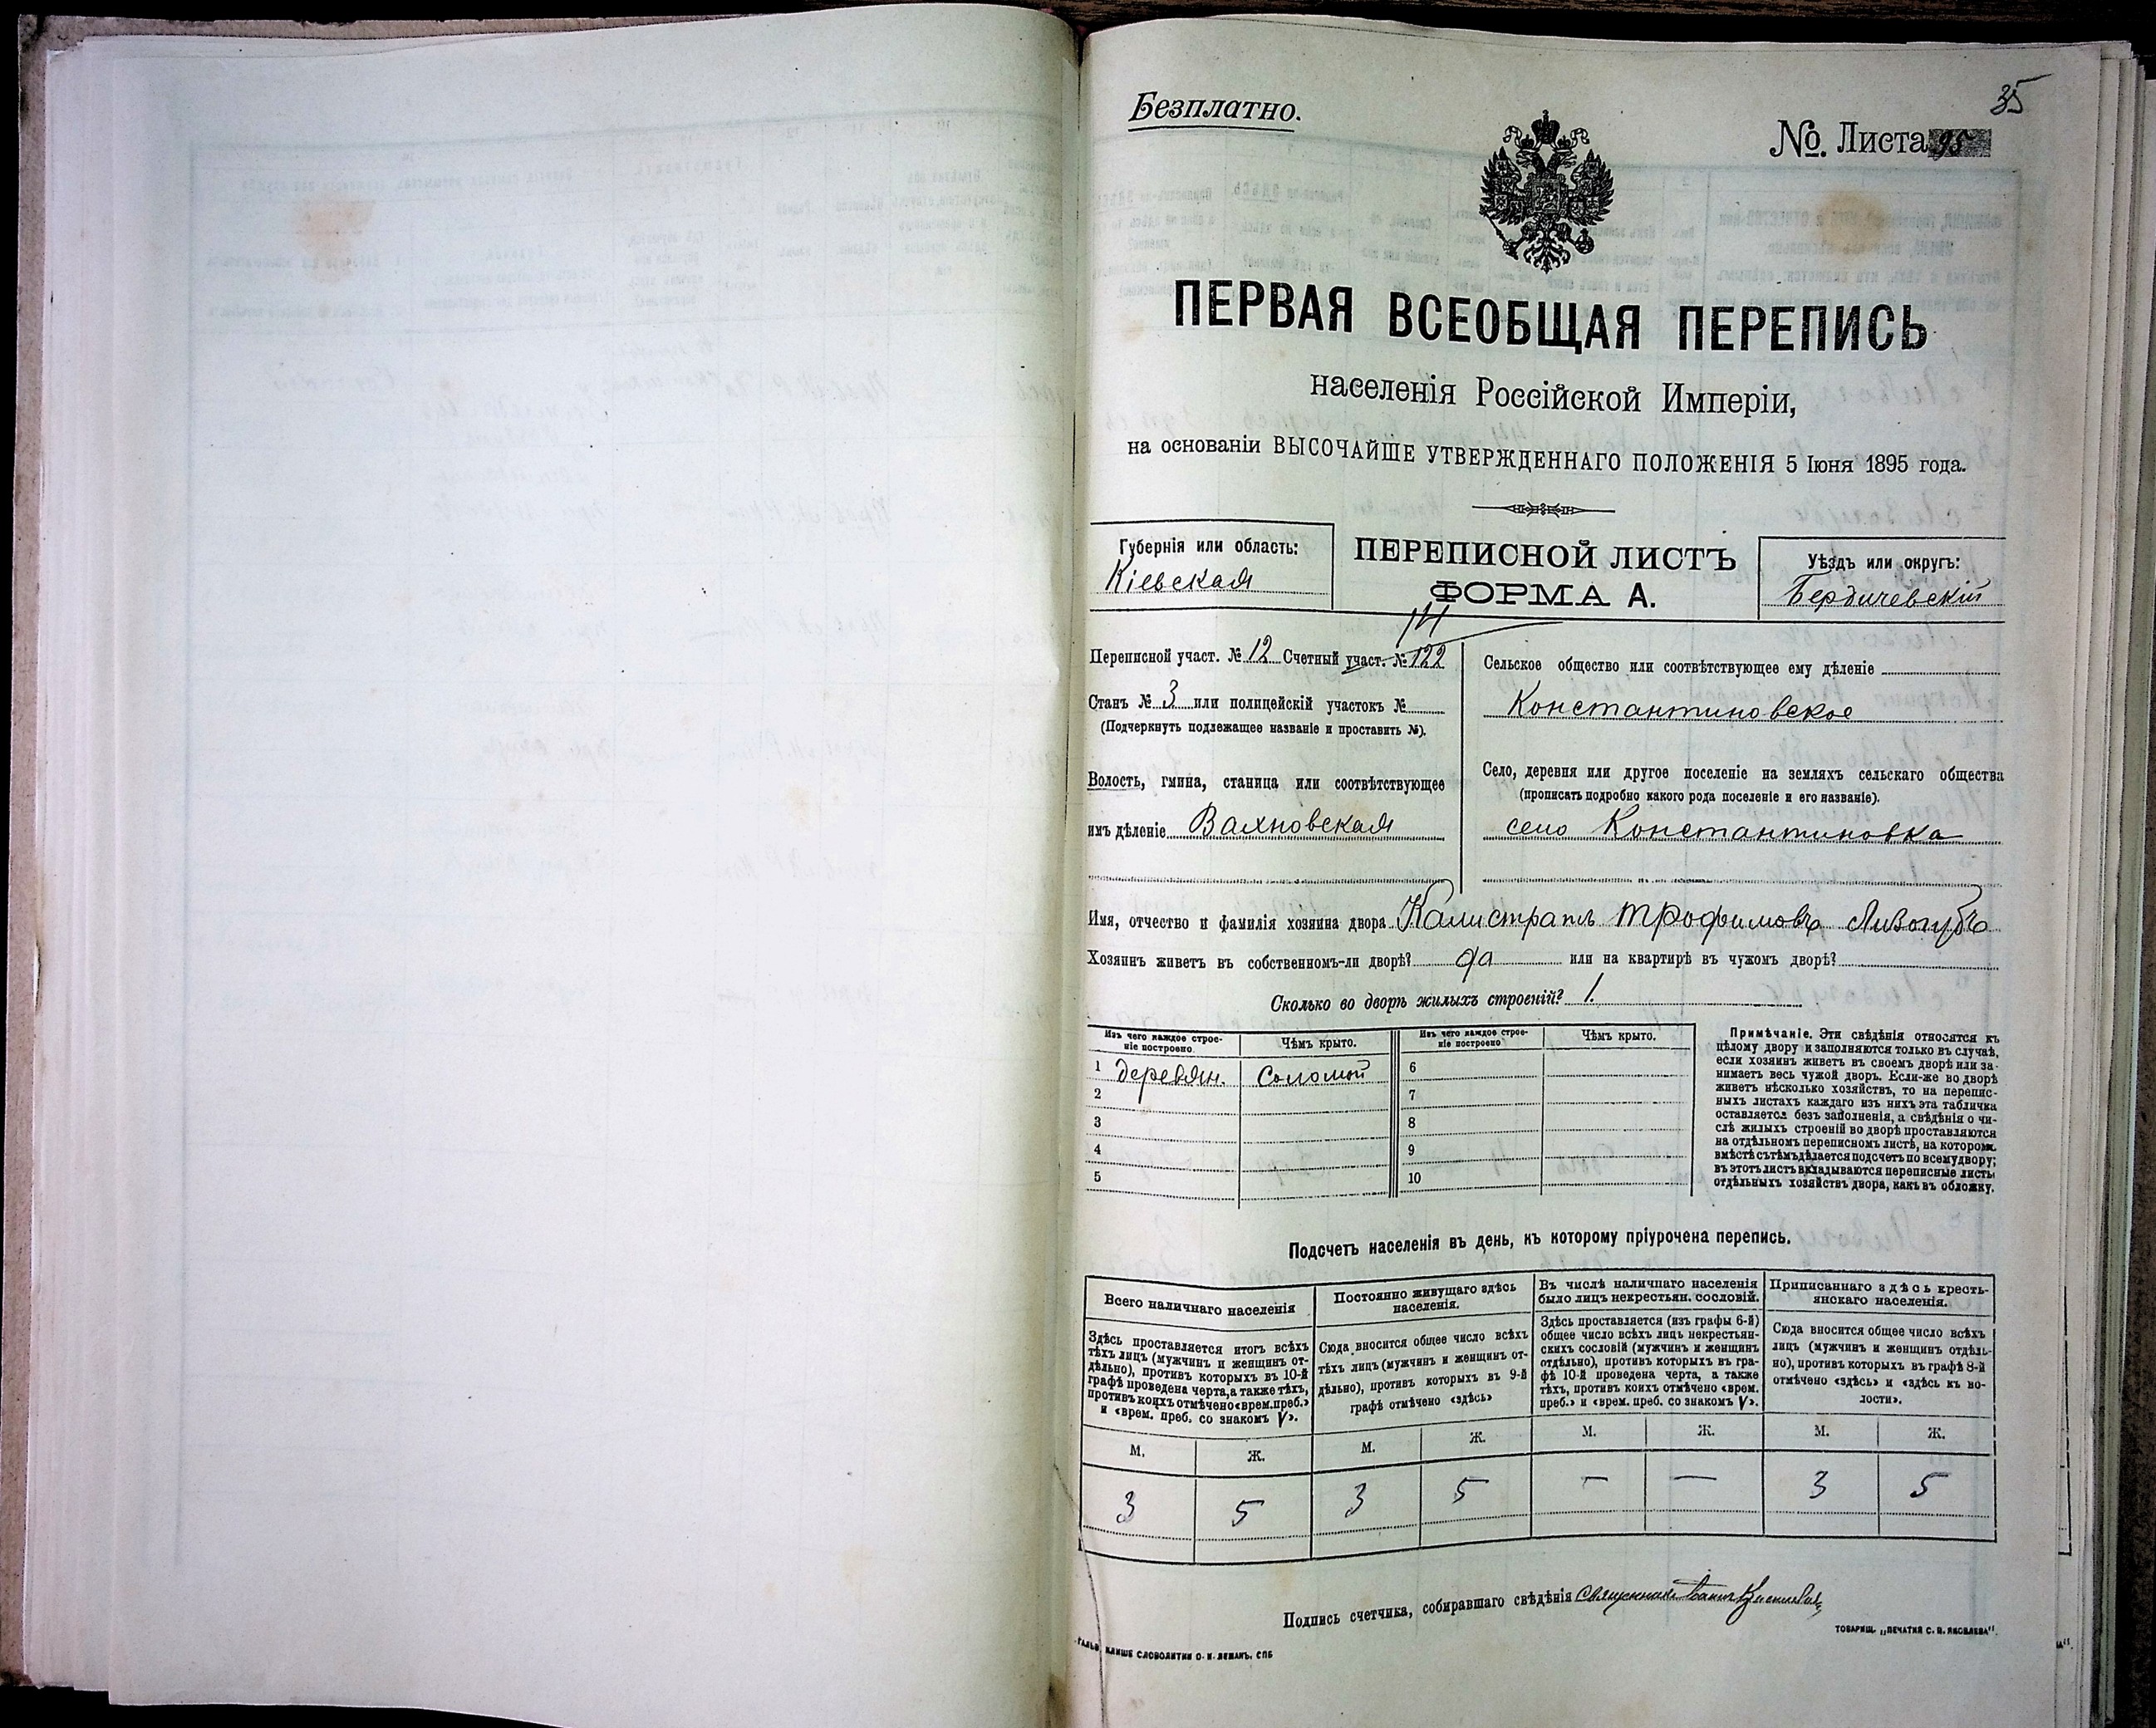 35
Безплатно.
№. Листа 95
ПЕРВАЯ ВСЕОБЩАЯ ПЕРЕПИСЬ
населенія Россійской Имперіи,
на основаніи ВЫСОЧАЙШЕ УТВЕРЖДЕННАГО ПОЛОЖЕНІЯ 5 Іюня 1895 года.
Губернія или область:
Кіевская
ПЕРЕПИСНОЙ ЛИСТЪ
ФОРМА А.
Уѣздъ или округъ:
Бердичевскій
14
Переписной участ. № 12 Счетный участ. № 122
Станъ № 3 или полицейскій участокъ №
(Подчеркнуть подлежащее названіе и проставить №).
Волость, гмина, станица или соотвѣтствующее
имъ дѣленіе Вахновская
Сельское общество или соотвѣтствующее ему дѣленіе
Константиновское
Село, деревня или другое поселеніе на земляхъ сельскаго общества
(прописать подробно какого рода поселеніе и его названіе).
село Константиновка
Имя, отчество и фамилія хозяина двора Калистратъ Трофимовъ Лизогубъ
Хозяинъ живетъ въ собственномъ-ли дворѣ? да или на квартирѣ въ чужомъ дворѣ?
Сколько во дворѣ жилыхъ строеній? 1.
Изъ чего каждое строе-
ніе построено
Чѣмъ крыто.
Изъ чего каждое строе-
ніе построено
Чѣмъ крыто.
1 деревян. Соломой 6
2 7
3 8
4 9
5 10
Примѣчаніе. Эти свѣдѣнія относятся къ
цѣлому двору и заполняются только въ случаѣ,
если хозяинъ живетъ въ своемъ дворѣ или за-
нимаетъ весь чужой дворъ. Если-же во дворѣ
живетъ нѣсколько хозяйствъ, то на перепис-
ныхъ листахъ каждаго изъ нихъ эта табличка
оставляется безъ заполненія, а свѣдѣнія о чи-
слѣ жилыхъ строеній во дворѣ проставляются
на отдѣльномъ переписномъ листѣ, на которомъ
вмѣстѣ съ тѣмъ дѣлается подсчетъ по всему двору;
въ этотъ листъ вкладываются переписные листы
отдѣльныхъ хозяйствъ двора, какъ въ обложку.
Подсчетъ населенія въ день, къ которому пріурочена перепись.
Всего наличнаго населенія
Здѣсь проставляется итогъ всѣхъ
тѣхъ лицъ (мужчинъ и женщинъ от-
дѣльно), противъ которыхъ въ 10-й
графѣ проведена черта, а также тѣхъ,
противъ коихъ отмѣчено «врем. преб.»
и «врем. преб. со знакомъ V».
Постоянно живущаго здѣсь
населенія.
Сюда вносится общее число всѣхъ
тѣхъ лицъ (мужчинъ и женщинъ от-
дѣльно), противъ которыхъ въ 9-й
графѣ отмѣчено «здѣсь»
Въ числѣ наличнаго населенія
было лицъ некрестьян. сословій.
Здѣсь проставляется (изъ графы 6-й)
общее число всѣхъ лицъ некрестьян-
скихъ сословій (мужчинъ и женщинъ
отдѣльно), противъ которыхъ въ гра-
фѣ 10-й проведена черта, а также
тѣхъ, противъ коихъ отмѣчено «врем.
преб.» и «врем. преб. со знакомъ V».
Приписаннаго здѣсь кресть-
янскаго населенія.
Сюда вносится общее число всѣхъ
лицъ (мужчинъ и женщинъ отдѣль-
но), противъ которыхъ въ графѣ 8-й
отмѣчено «здѣсь» и «здѣсь въ во-
лости».
М. Ж. М. Ж. М. Ж. М. Ж.
3 5 3 5 — — 3 5
Подпись счетчика, собиравшаго свѣдѣнія священникъ
ТОВАРИЩ. „ПЕЧАТНЯ С. П. ЯКОВЛЕВА".
КЛИШЕ СЛОВОЛИТНИ О. И. ЛЕМАНЪ, СПБ